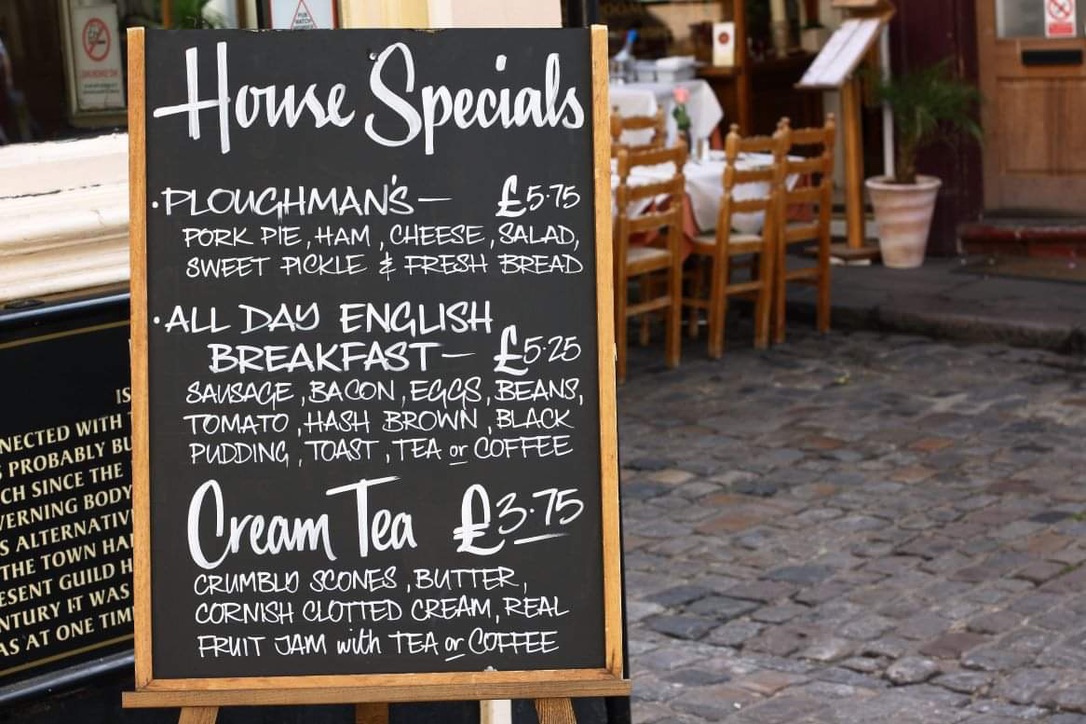 House Specials
·PLOUGHMAN'S— £5·75
PORK PIE, HAM, CHEESE, SALAD,
SWEET PICKLE & FRESH BREAD
·ALL DAY ENGLISH
BREAKFAST— £5·25
SAUSAGE, BACON, EGGS, BEANS,
TOMATO, HASH BROWN, BLACK
PUDDING, TOAST, TEA or COFFEE
Cream Tea £3·75
CRUMBLD SCONES, BUTTER,
CORNISH CLOTTED CREAM, REAL
FRUIT JAM with TEA or COFFEE
IS
NNECTED WITH
PROBABLY BU
CH SINCE THE
VERNING BODY
S ALTERNATIV
THE TOWN HA
ESENT GUILD H
NTURY IT WAS
AS AT ONE TIM